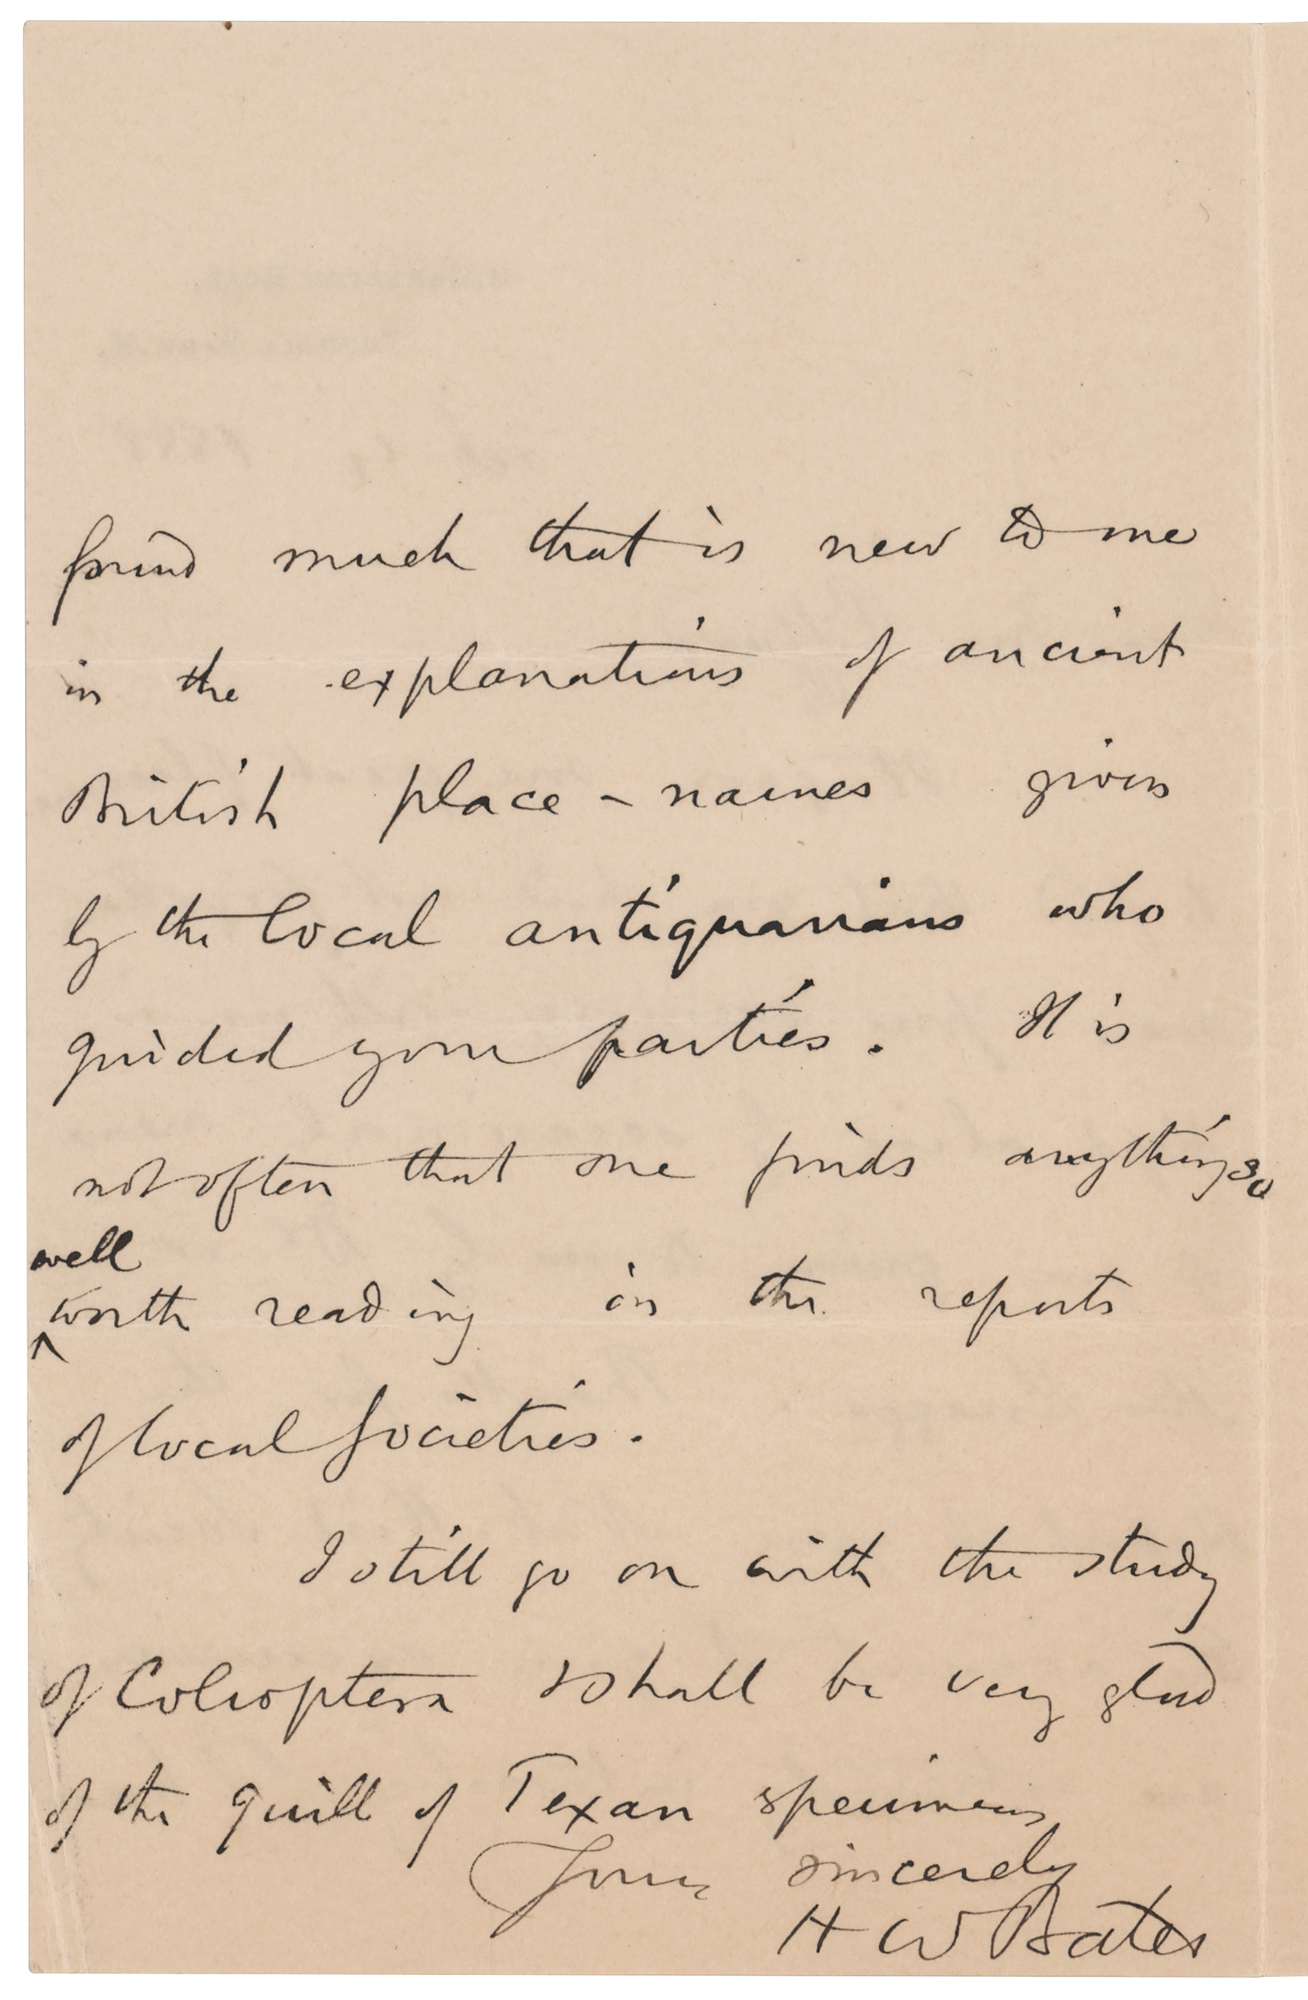 found much that is new to me
in the explanations of ancient
British place-names given
by the local antiquarians who
guided your parties. It is
not often that one finds anything so
well
worth reading in the reports
of local Societies.
I still go on with the study
of Coleoptera & shall be very glad
of the quill of Texan specimens
Yours sincerely
H W Bates